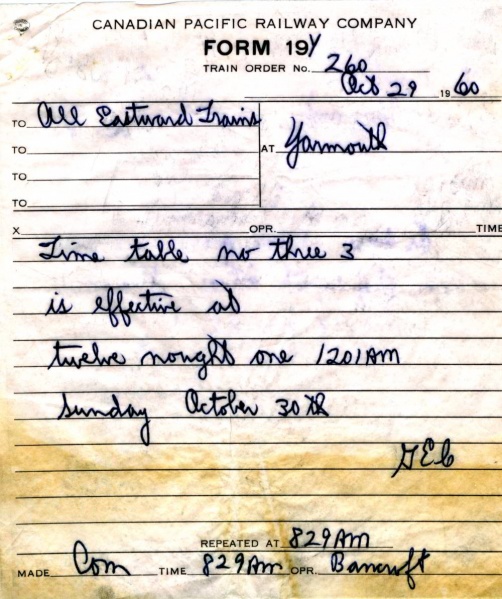 CANADIAN PACIFIC RAILWAY COMPANY
FORM 19Y
TRAIN ORDER No. 260
Oct 29 1960
TO All Eastward Trains
TO
AT Yarmouth
TO
TO
X OPR. TIME
Time table no three 3
is effective at
twelve nought one 1201AM
Sunday October 30th
GEC
REPEATED AT 829AM
MADE Com TIME 829AM OPR. Bancroft